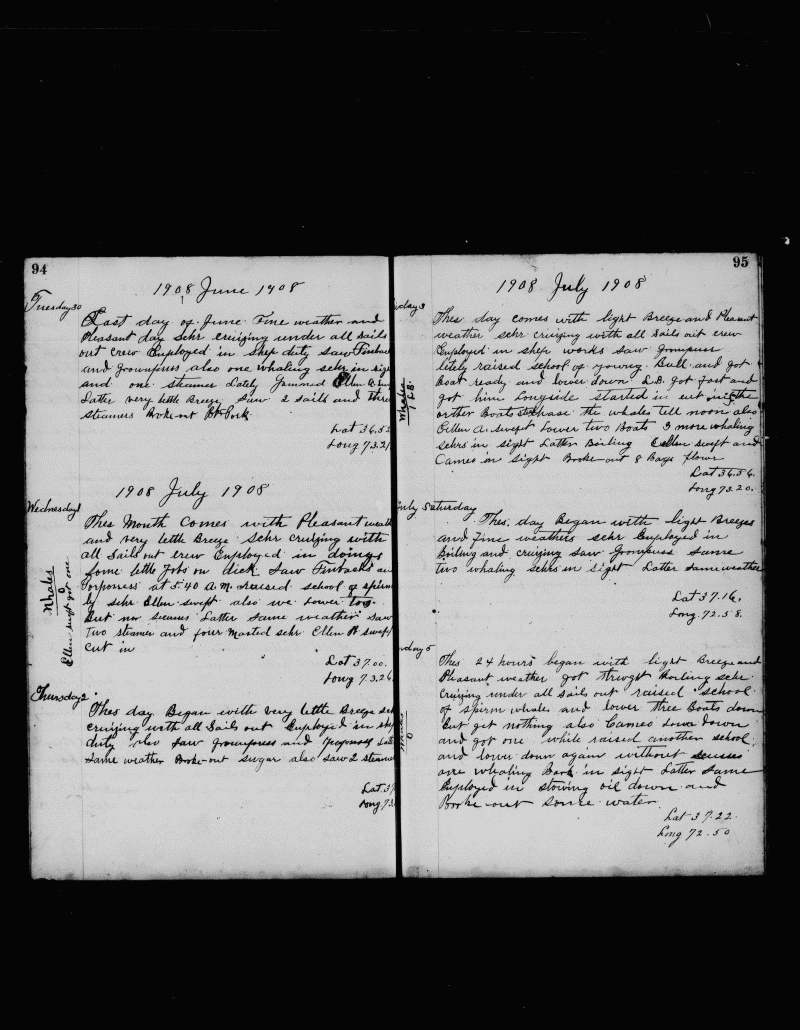 94
1908 June 1908
Tuesday 30
Last day of June Fine weather and
Pleasant day Schr cruizing under all Sails
out crew Employed in Shep duty Saw Finbac
and grounpuss also one whaling schr in sigh
and one steamer Lately Jammed Ellen A.
Latter very lettle Breeze Saw 2 Sails and three
steamers Broke out Pork
Lat 36.52
Long 73.21
1908 July 1908
Wednesday 1
Thes Month Comes with Pleasant weath
and very lettle Breeze Schr cruizing with
all Sails out crew Employed in doings
Some lettle Jobs on dick Saw Finbacks an
Porponess at 5.40 A.M. raised school of spirm
by schr Ellen sweft also we Lower too.
But now seceases Latter Same weather saw
two steamer and four Masted schr Ellen A swept
cut in
Whales
0
Ellen swift got one
Lat 37.00.
Long 73.26
Thursday 2
Thes day Began with very lettle Breeze sch
cruizing with all Sails out Employed in shep
duty also saw grounpess and
Same weather Broke-out sugar also saw 2 steame
Lat. 37
Long 73
95
1908 July 1908
day 3
Thes day comes with light Breeze and Pleasant
weather schr cruizing with all Sails out crew
Employed in shep works saw grounpuss
litely raised school of young Bull and got
Boat ready and lower down L.B. got fast and
got him Longside started in cut in the
orther Boats chase the whales tell noon also
Ellen A. swept Lower two Boats 3 more whaling
schrs in sight Latter Boiling Ellen swift and
Cameo in Sight Broke-out 8 Bags flowr
Whales
1 L.B.
Lat 36.56.
Long 73.20.
July Saturday
Thes. day Began with light Breezes
and Fine weathers schr Employed in
Boiling and cruizing saw grounpuss Same
two whaling schrs in sight Latter same weather
Lat 37.16.
Long. 72.58.
day 5
Thes 24 hours began with light Breeze and
Pleasant weather got throwgt Boiling schr
Cruizing under all Sails out raised school
of spirm whales and lower three Boats down
but get nothing also Cameo Lowa down
and got one while raised another school
and lower down again without scusses
one whaling Bark in sight Latter Same
Employed in stowing oil down and
Borke-out some water.
Whales
0
Lat 37.22.
Long 72.50